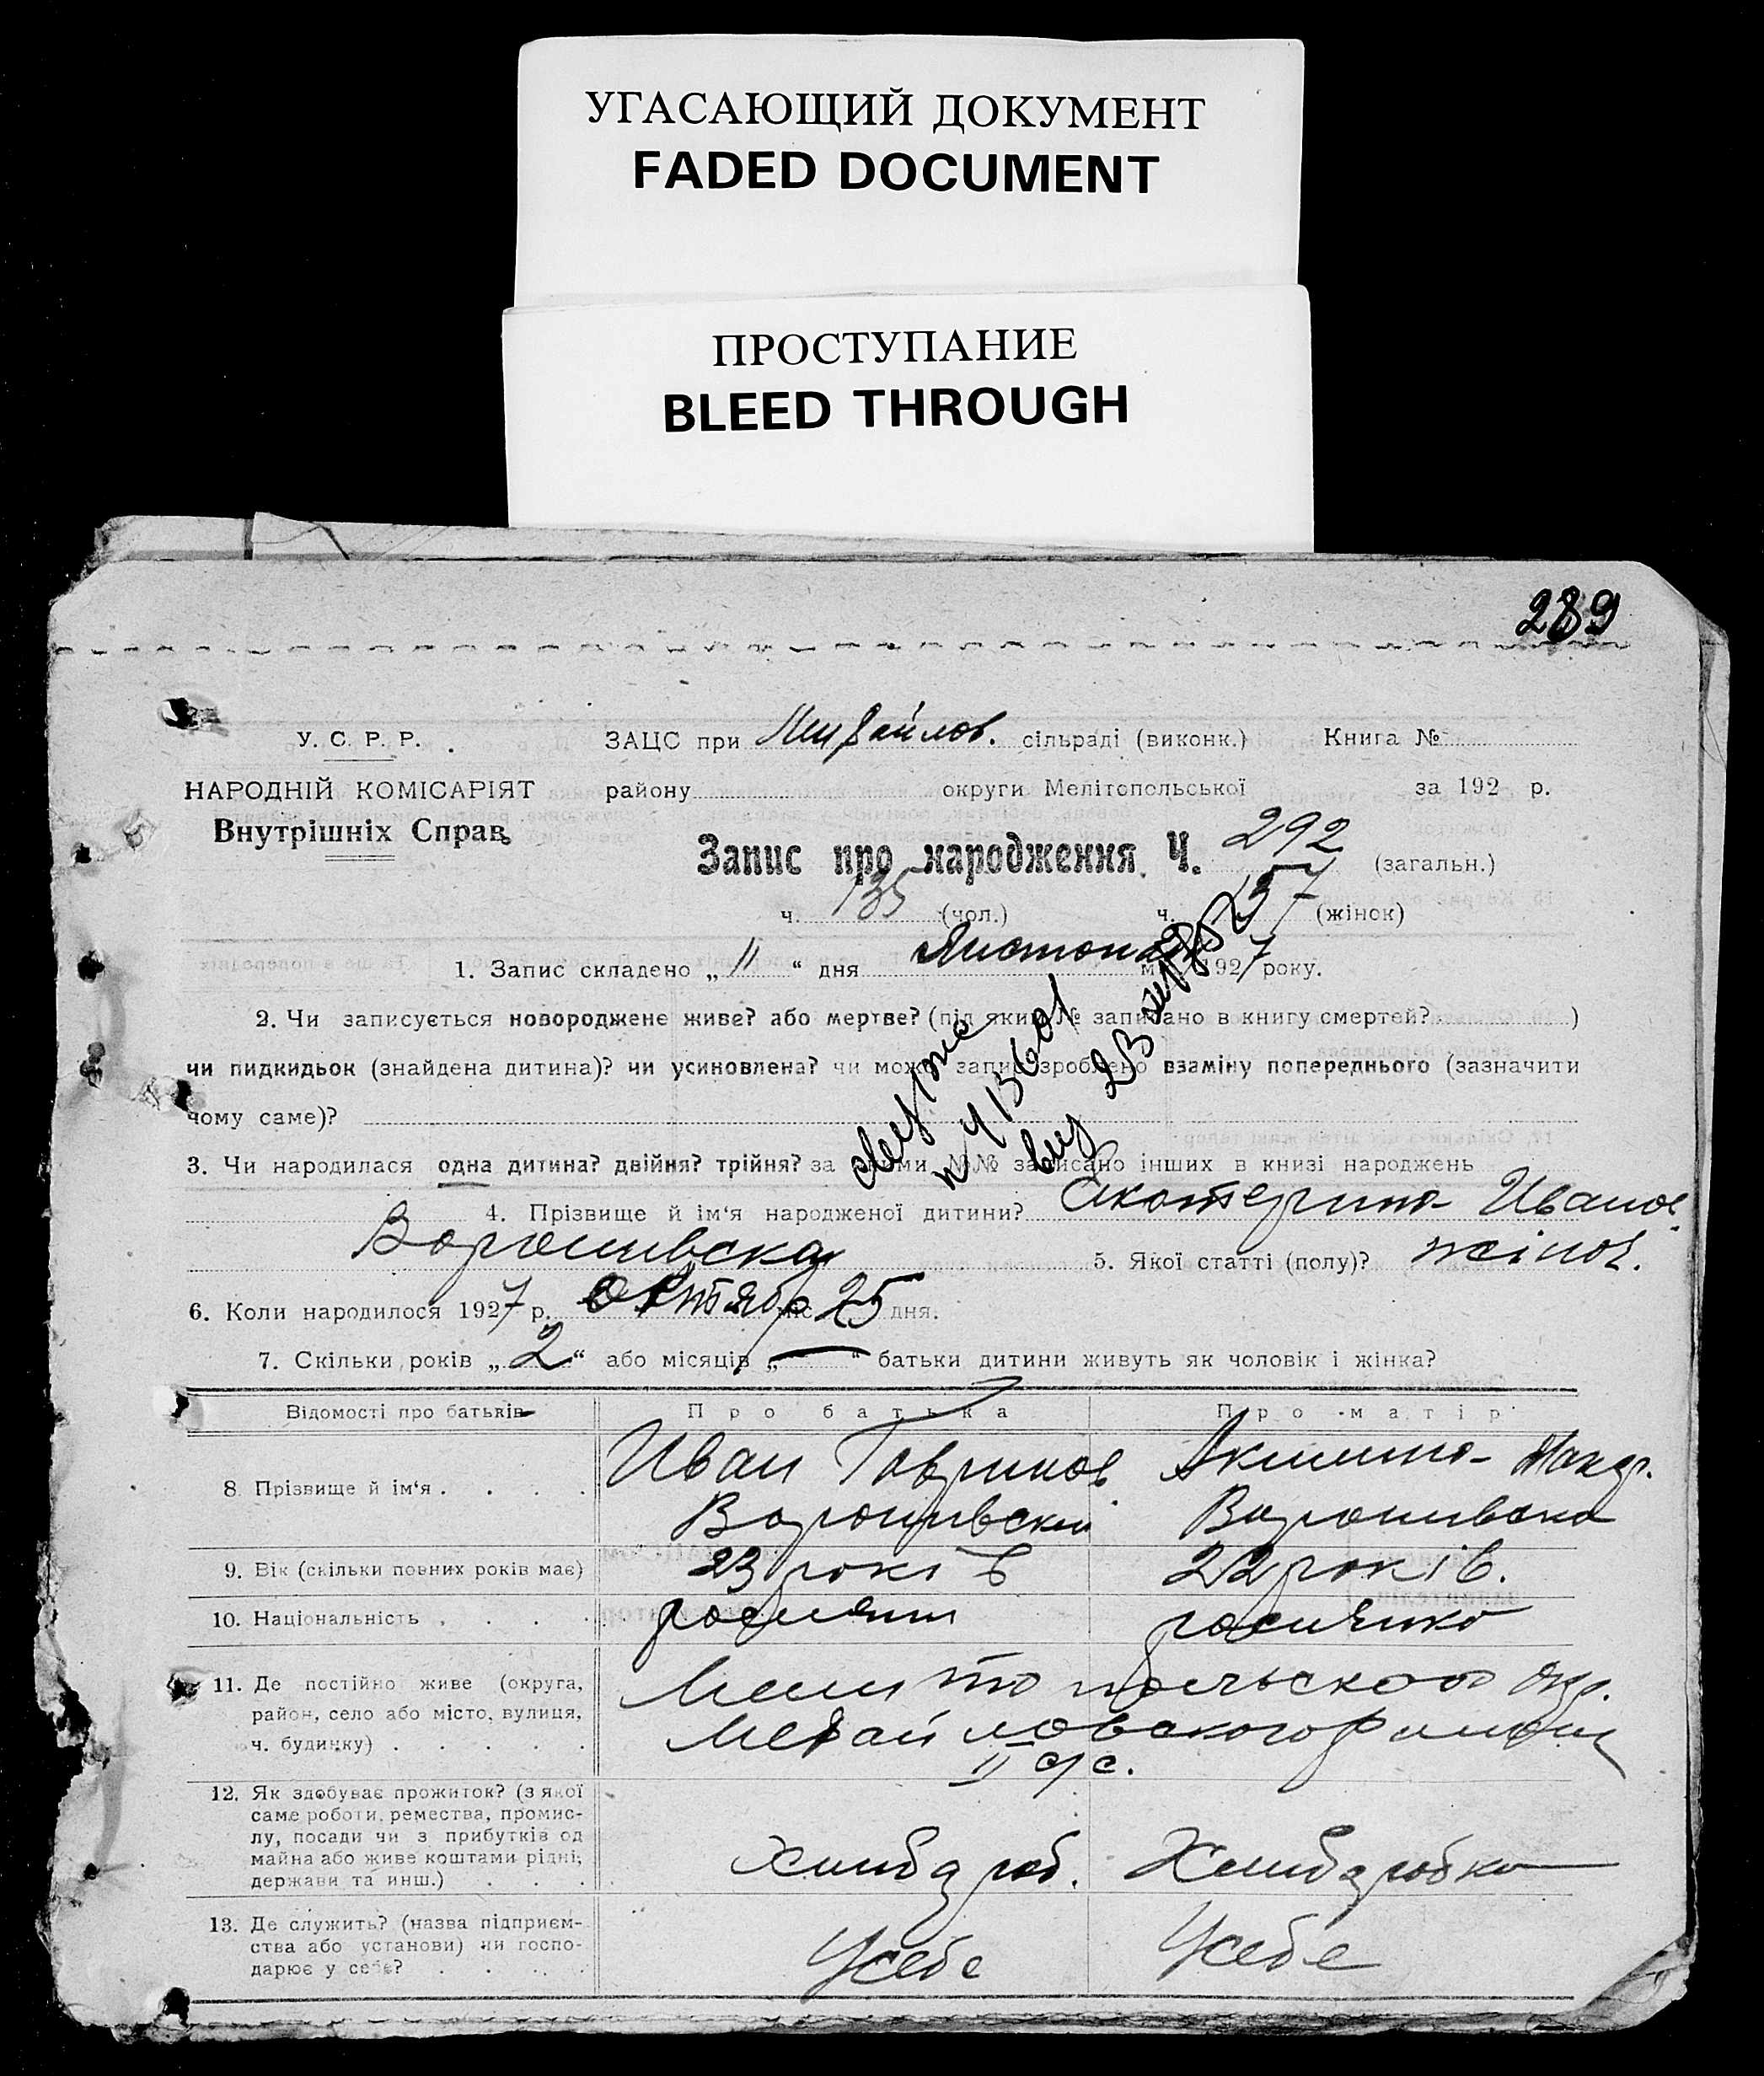 УГАСАЮЩИЙ ДОКУМЕНТ
FADED DOCUMENT
ПРОСТУПАНИЕ
BLEED THROUGH
289
У. С. Р. Р. ЗАЦС при сільраді (виконк.) Книга №
НАРОДНІЙ КОМІСАРІЯТ району округи Мелітопольської за 192 р.
Внутрішніх Справ
Запис про народження Ч. 292 (загальн.)
ч. 135 (чол.) ч. 157 (жінок)
1. Запис складено „ 11 “ дня Листопада м. 1927 року.
2. Чи записується новороджене живе? або мертве? (під яким № записано в книгу смертей? )
чи пидкидьок (знайдена дитина)? чи усиновлена? чи може запис зроблено взаміну попереднього (зазначити
чому саме)?
3. Чи народилася одна дитина? двійня? трійня? за якими №№ записано інших в книзі народжень
4. Прізвище й ім‘я народженої дитини? Екатерина Иванов.
5. Якої статті (полу)? жіноч.
6. Коли народилося 1927 р. Октября міс. 25 дня.
7. Скільки років „ 2 “ або місяців „ — “ батьки дитини живуть як чоловік і жінка?
Відомості про батьків Про батька Про матір
8. Прізвище й ім‘я . . . . Иван Гаврилов.
9. Вік (скільки повних років має) 23 років 22 років.
10. Національність . . . . росиянин росиянка
11. Де постійно живе (округа,
район, село або місто, вулиця,
ч. будинку) . . . . .
Мелитопольского окр.
II с/с.
12. Як здобуває прожиток? (з якої
саме роботи, ремества, промис-
лу, посади чи з прибутків од
майна або живе коштами рідні,
держави та инш.) . . .
Хлибороб. Хлиборобка
13. Де служить? (назва підприєм-
ства або установи) чи госпо-
дарює у себе? . . . . .
У себе У себе